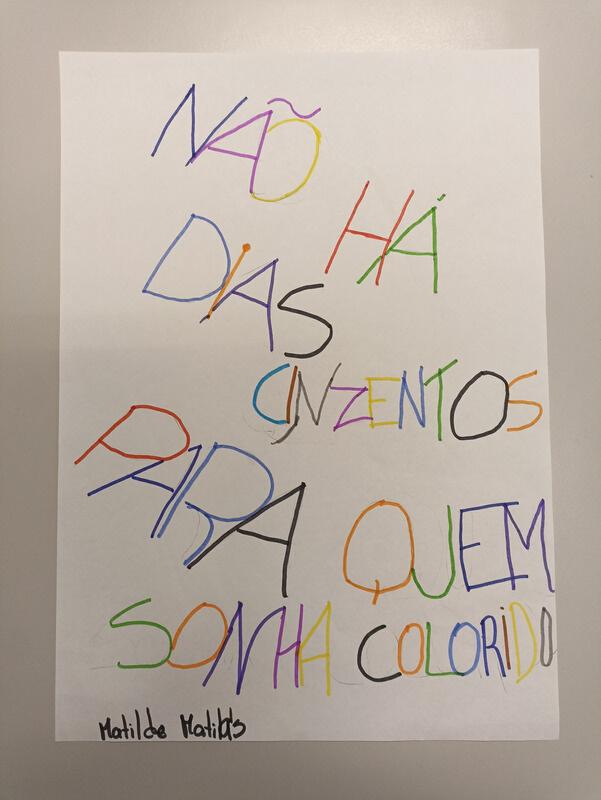 NÃO
HÁ
DiAS
CINZENTOS
PARA QUEM
SONHA COLORiDO
Matilde Matias